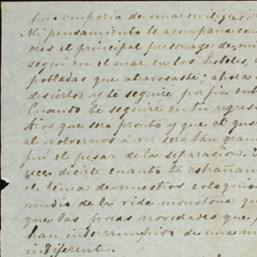 Mi pensamiento te acompaña con
eres el principal personage de mi
seguí en el mar, en los hoteles,
pobladas que atravesaste; ahora
desiertos y te seguiré por fin ent
Cuando te seguiré en tu regreso
que será pronto y que el gus
al volvernos a ver será tan gran
fué el pesar de la separacion.
decirte cuanto te estrañan
el tema de nuestros coloquios
medio de la vida monotona que
que las pocas novedades que
han interrumpido de una m
indiferente.